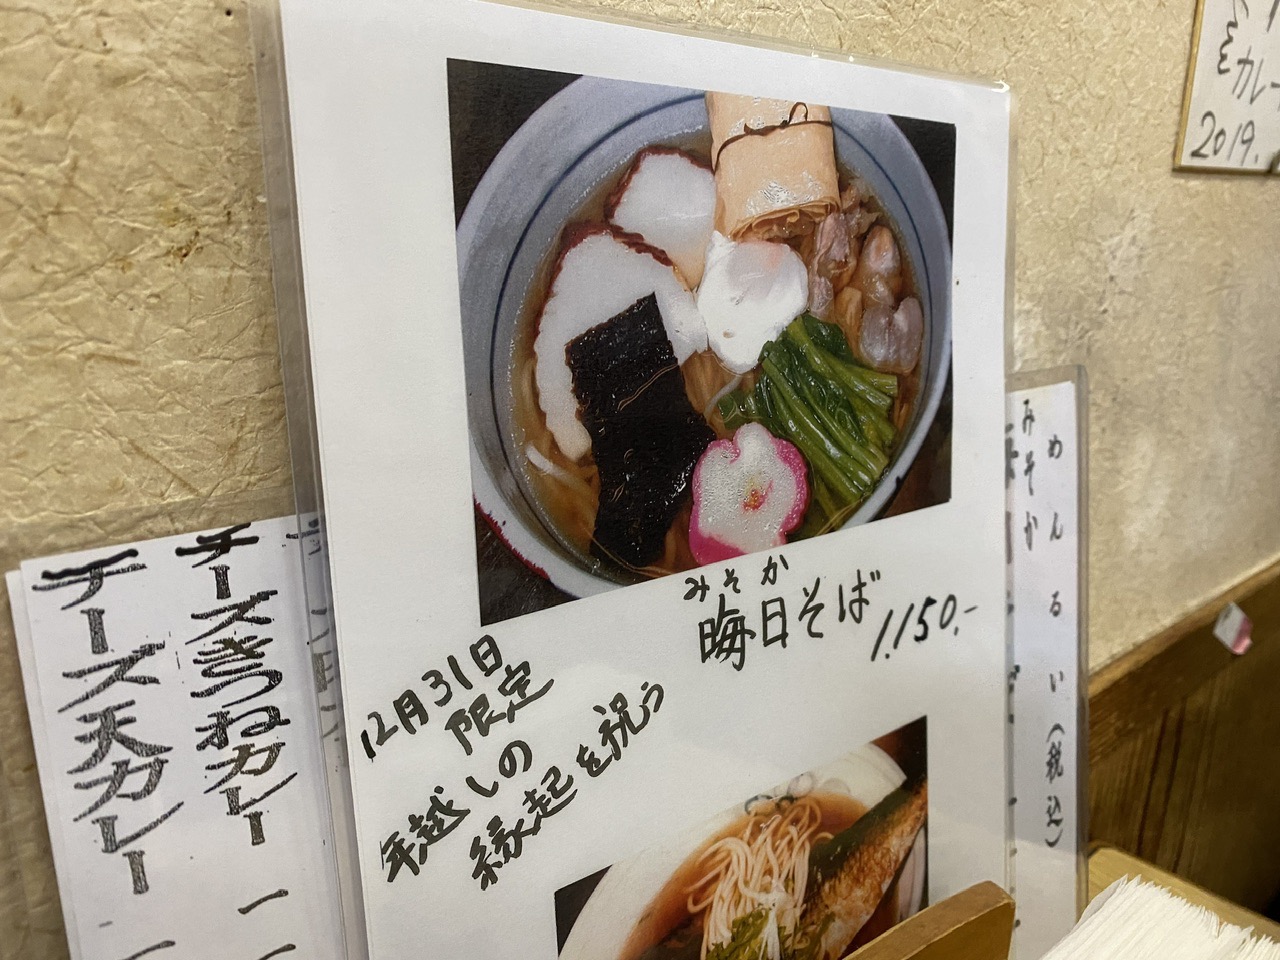 みそか
晦日そば 1.150.-
12月31日
限定
年越しの
縁起を祝う
チーズきつねカレー 一
チーズ天カレー 一
めんるい(税込)
みそか
カレー
2019.